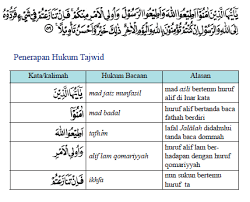 يَا أَيُّهَا الَّذِينَ آمَنُوا أَطِيعُوا اللَّهَ وَأَطِيعُوا الرَّسُولَ وَأُولِي الْأَمْرِ مِنْكُمْ فَإِنْ تَنَازَعْتُمْ فِي شَيْءٍ فَرُدُّوهُ
إِلَى اللَّهِ وَالرَّسُولِ إِنْ كُنْتُمْ تُؤْمِنُونَ بِاللَّهِ وَالْيَوْمِ الْآخِرِ ذَلِكَ خَيْرٌ وَأَحْسَنُ تَأْوِيلًا ﴿٥٩﴾
Penerapan Hukum Tajwid
Kata/kalimah Hukum Bacaan Alasan
يَا أَيُّهَا الَّذِينَ mad jaiz munfasil mad asli bertemu huruf
alif di luar kata
آمَنُوا mad badal huruf alif bertanda baca
fathah berdiri
أَطِيعُوا اللَّهَ tafhim lafal Jalalah didahului
tanda baca dommah
وَأُولِي الْأَمْرِ alif lam qomariyyah huruf alif lam ber-
hadapan dengan huruf
qomariyyah
فَإِنْ تَنَازَعْتُمْ ikhfa nun sukun bertemu
huruf ta